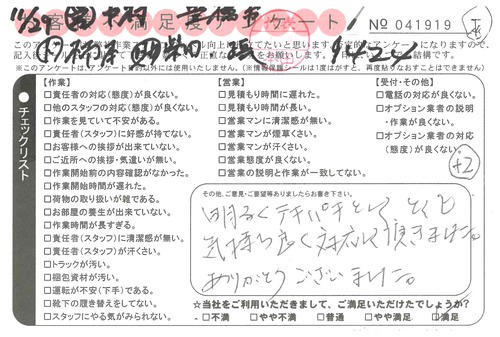 お客様満足度アンケート！ No 041919
※このアンケートは、アンケート目的以外には使用いたしません。(※情報保護シールは1度はがすと、再度貼りなおすことはできません)
チェックリスト
【作業】
□責任者の対応(態度)が良くない。
□他のスタッフの対応(態度)が良くない。
□作業を見ていて不安がある。
□責任者(スタッフ)に好感が持てない。
□お客様への挨拶が出来ていない。
□ご近所への挨拶・気遣いが無い。
□作業開始前の内容確認がなかった。
□作業開始時間が遅れた。
□荷物の取り扱いが雑である。
□お部屋の養生が出来ていない。
□作業時間が長すぎる。
□責任者(スタッフ)に清潔感が無い。
□責任者(スタッフ)が汗くさい。
□トラックが汚い。
□梱包資材が汚い。
□運転が不安(下手)である。
□靴下の履き替えをしてない。
□スタッフにやる気がみられない。
【営業】
□見積もり時間に遅れた。
□見積もり時間が長い。
□営業マンに清潔感が無い。
□営業マンが煙草くさい。
□営業マンが汗くさい。
□営業態度が良くない。
□営業の説明と作業が一致してない。
【受付・その他】
□電話の対応が良くない。
□オプション業者の説明
・作業が良くない。
□オプション業者の対応
(態度)が良くない。
+2
その他、ご意見・ご要望等ありましたらお書き下さい。
明るくテキパキとして とても
気持ち良く対応して頂きました。
ありがとうございました。
☆当社をご利用いただきまして、ご満足いただけたでしょうか?
□不満 □やや不満 □普通 □やや満足 □満足